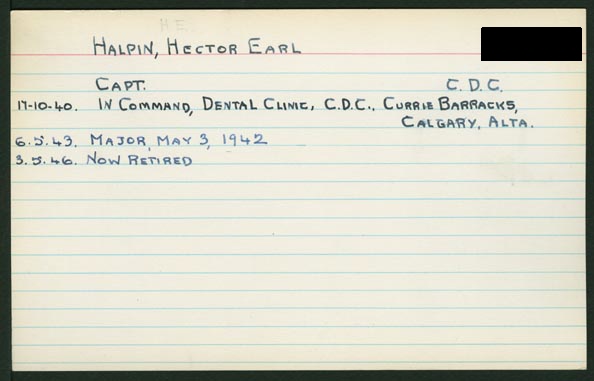 HALPIN, HECTOR EARL
CAPT. C.D.C.
17-10-40. IN COMMAND, DENTAL CLINIC, C.D.C., CURRIE BARRACKS,
CALGARY, ALTA.
6.5.43. MAJOR, MAY 3, 1942
3.5.46. NOW RETIRED